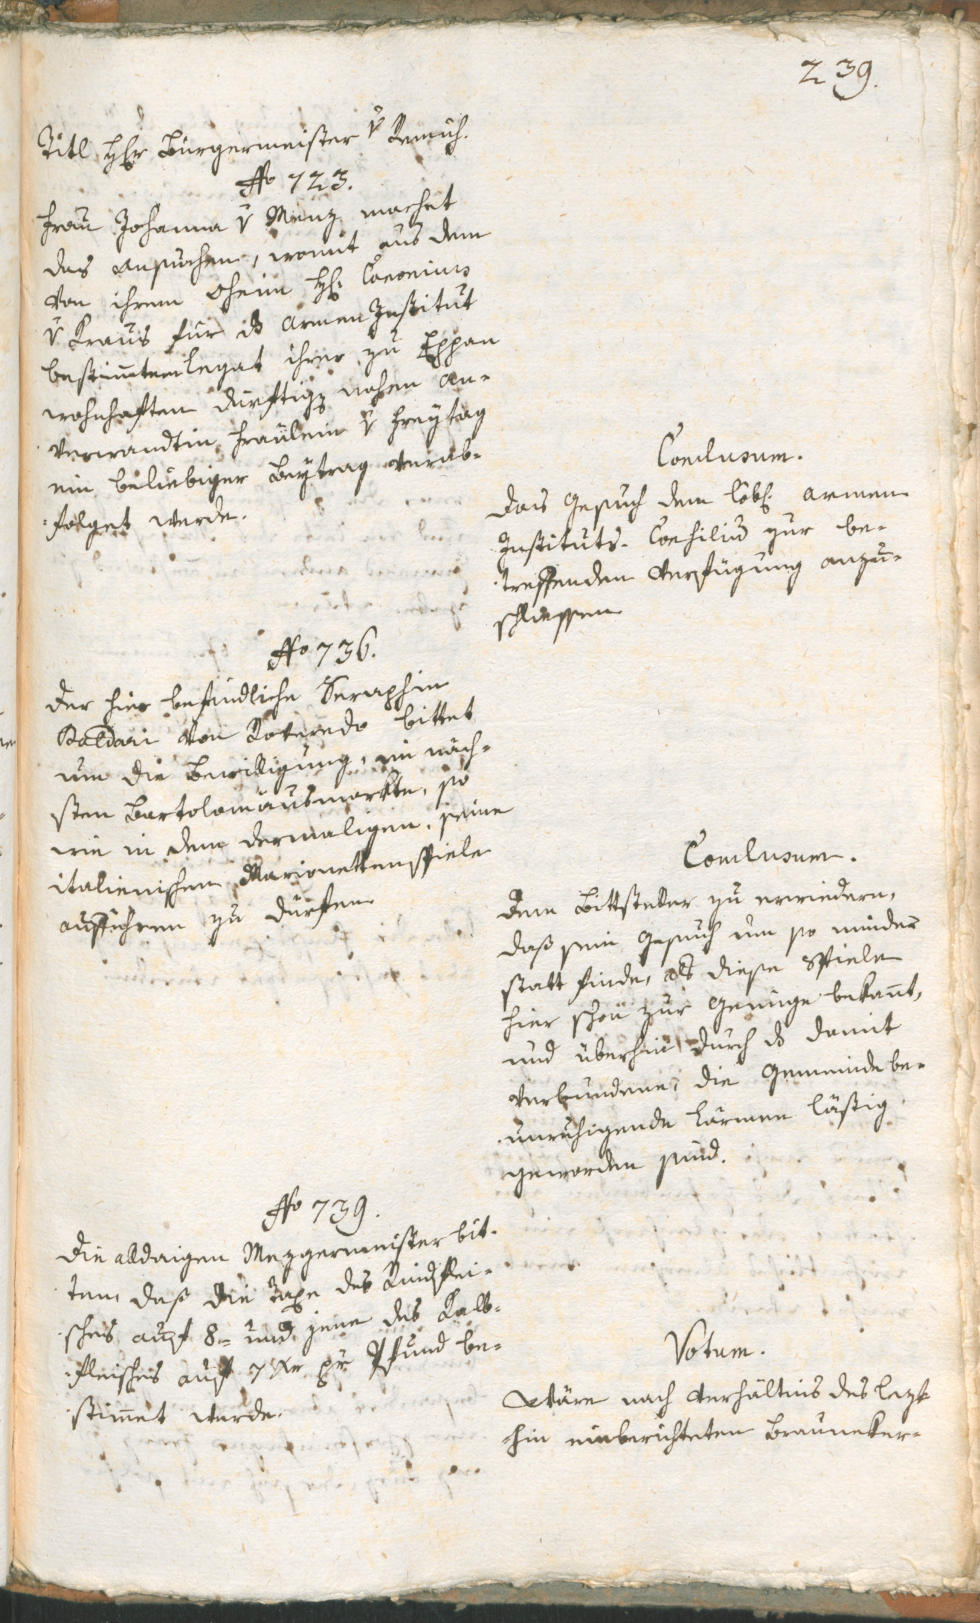 239.
Titl Hr Bürgermeister v Remich.
No 723.
Frau Johanna v Menz machet
das ansuchen, womit aus dem
von ihrem Oheim H: Canonicus
v Kraus für ds Armen Institut
bestimmten Legat ihrer zu Eppan
wohnhaften dürftig nahen An-
verwandtin Fräulein v Freytag
ein beliebiger Beytrag verab-
folget werde.
Conclusum.
Das Gesuch dem löbl: Armen
Instituts-Consilio zur be-
treffenden Verfügung anzu-
schliessen
No 736.
Der hier befindliche Seraphin
Baldari von Roveredo bittet
um die Bewilligung, im näch-
sten Bartolomäusmarkte, so
wie in dem dermaligen, seine
italienischen Marionettenspiele
aufführen zu dürfen.
Conclusum.
Dem Bittsteller zu erwiedern,
daß sein Gesuch um so minder
statt finde, als diese Spiele
hier schon zur Genüge bekannt,
und überhin durch ds damit
verbundene, die Gemeinde be-
unruhigende Lärmen lästig
geworden sind.
No 739.
Die alldaigen Mezgermeister bit-
ten, daß die Taxe des Rindflei-
sches auf 8- und jene des Kalb-
fleisches auf 7 Xr pr Pfund be-
stimmet werde.
Votum.
Wäre nach Verhältnis des lezt
hin einberichteten Brauneker-